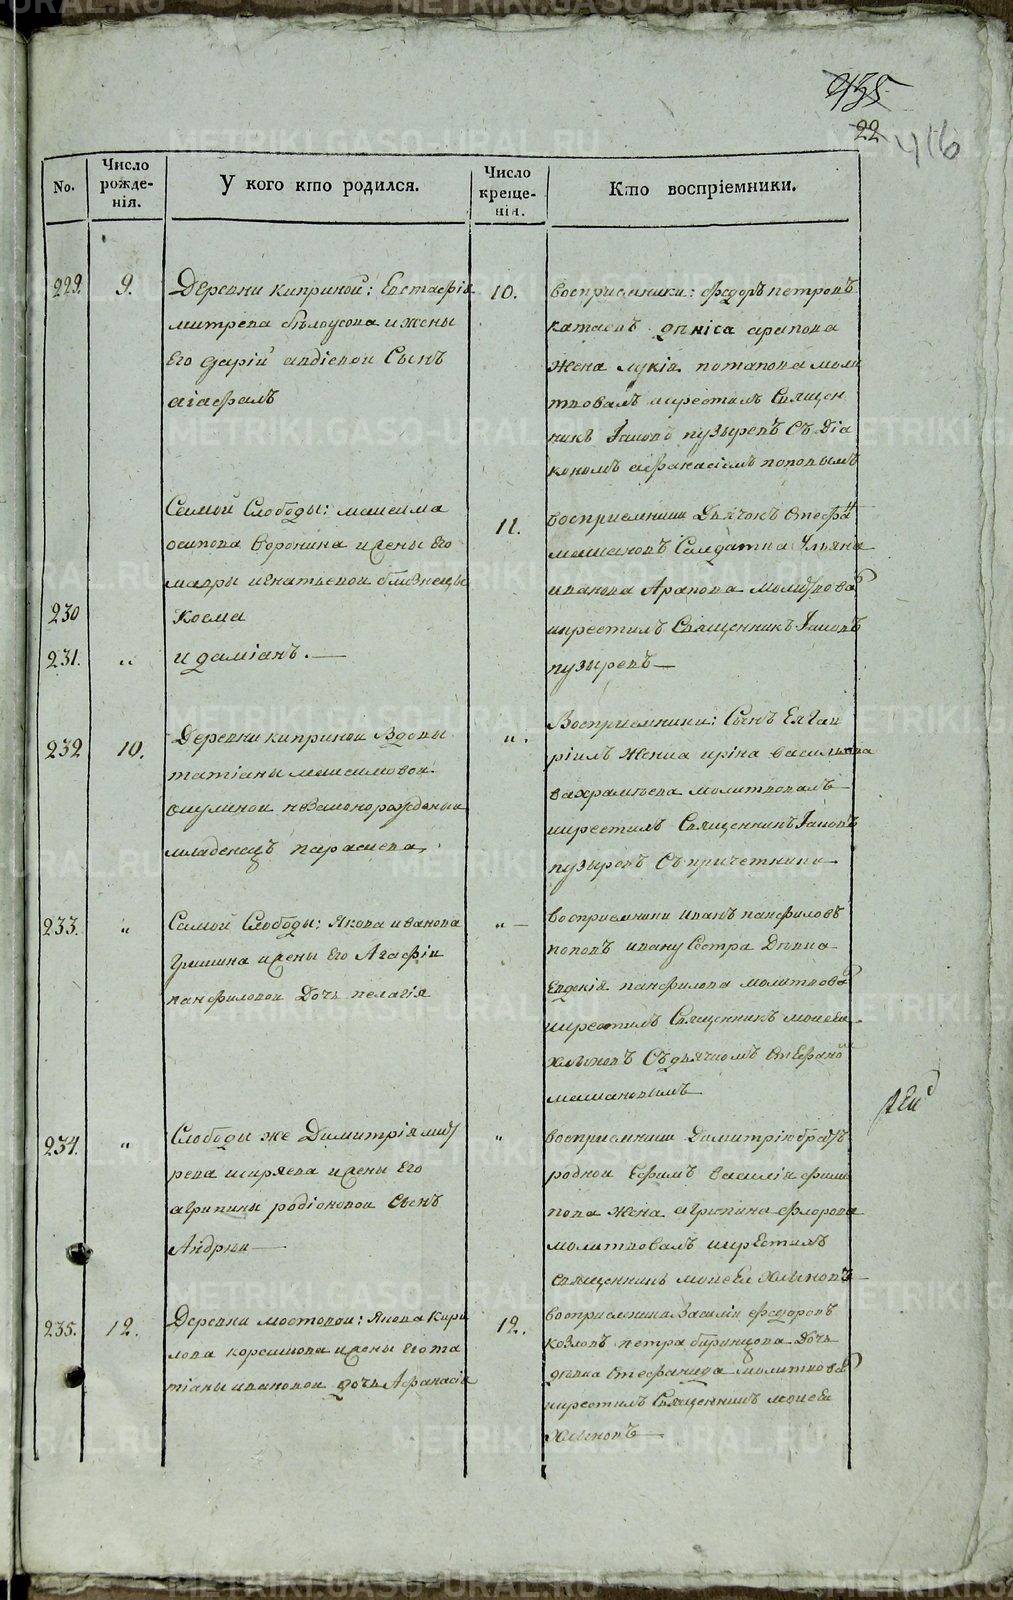 435
22 416
No.
Число рожденія.
У кого кто родился.
Число крещенія.
Кто воспріемники.
229. 9.
Деревни киприной: Евстафіа
митрева бѣлоусова и жены
Его дарій авдіевой Сынъ
агафалъ
10.
восприемники: федоръ петровъ
катаевъ дѣніса арапова
жена лукія потапова моли
твовалъ икрестилъ Священ
никъ Іаковъ пузыревъ Съ Діа
кономъ афанасіемъ поповымъ
Самой Слободы: максима
осипова воронина и жены Его
мавры игнатьевой близнецы
230 Косма
231. " и даміанъ.
11.
восприемники Дьячокъ Стефа
машановъ Салдатка Ульяна
иванова Арапова молитвова
икрестилъ Священникъ Іаковъ
пузыревъ
232 10.
Деревни киприной Вдовы
татіаны максимовой
незаконорожденый
младенецъ парасиева
".
Восприемники: Сынъ
жѣнка иріна васильева
вахрамѣева молитвовалъ
икрестилъ Священникъ Іаковъ
пузыревъ Съ причетники
233. "
Самой Слободы: Якова иванова
Гришина и жены Его Агафіи
панфиловой Дочь пелагія
"
восприемники иванъ панфиловъ
поповъ ивану Сестра Дѣвка
Евдокія панфилова молитвова
икрестилъ Священникъ моисей
хлыновъ Съ дьячкомъ Стефано
машановымъ
234. "
Слободы же Димитрія мит
рева ширяева и жены Его
агрипины родіоновой Сынъ
Андрей
"
восприемники Димитрію братъ
родной Ефимъ василія филип
пова жена агрипина флорова
молитвовалъ икрестилъ
священникъ моисей хлыновъ
235. 12.
Деревни мостовой: Якова Кири
лова корешкова и жены Его та
тіаны ивановой дочь Афанасія
12.
восприемники Василій федоровъ
козловъ петра Дочь
дѣвка Стефанида молитвова
икрестилъ Священникъ моисей
хлыновъ
METRIKI.GASO-URAL.RU